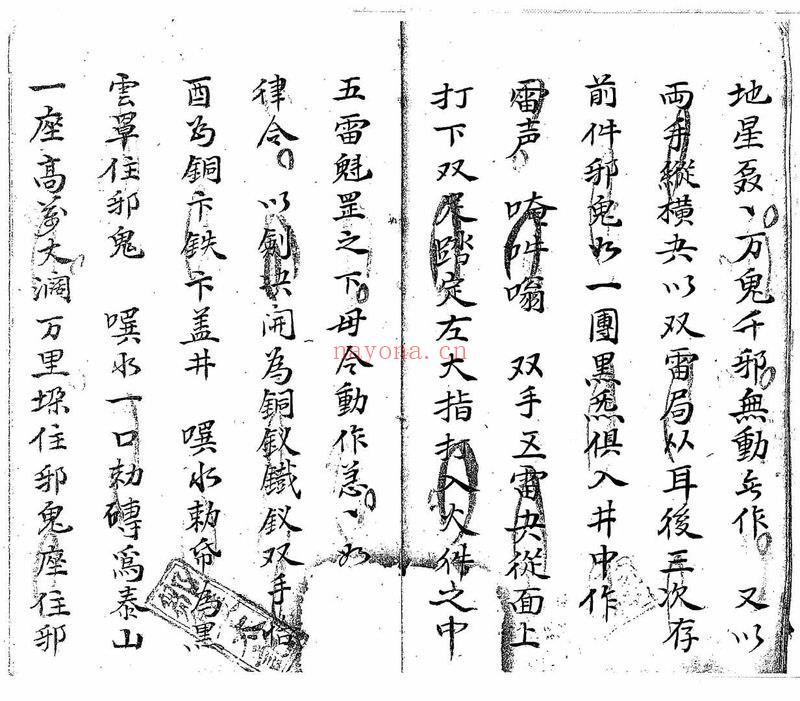 地星磊〻万鬼千邪無動無作 又以
両手縱横夬以双雷局从耳後三次存
前件邪鬼如一團黒炁俱入井中作
雷声 唵吽嗡 双手五雷夬從面上
打下双足踏定左大指打入火件之中
五雷魁罡之下毋令動作急〻如
律令 以劍决開為銅釵鐵釵双手
酉為銅卞鉄卞盖井 噀水勅帋為黒
雲罩住邪鬼 噀水一口勅磚爲泰山
一座高萬丈濶万里垜住邪鬼座住邪
nayona.cn